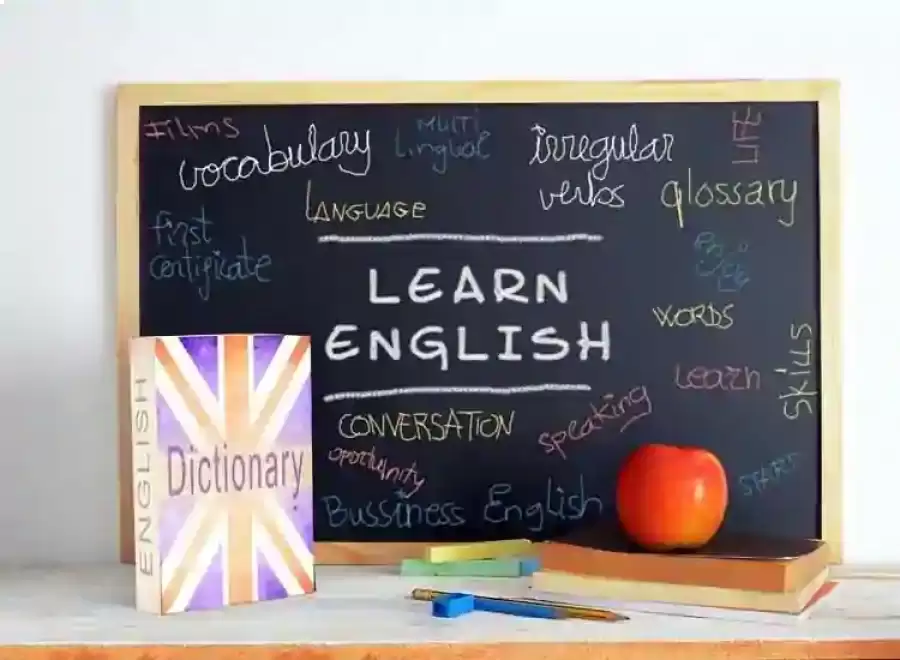 Films
vocabulary
MULTI
lingual
irregular
verbs
LIFE
LANGUAGE
glossary
first
certificate
LEARN
ENGLISH
WORDS
Learn
Skills
CONVERSATION
speaking
oportunity
START
Bussiness English
ENGLISH
Dictionary